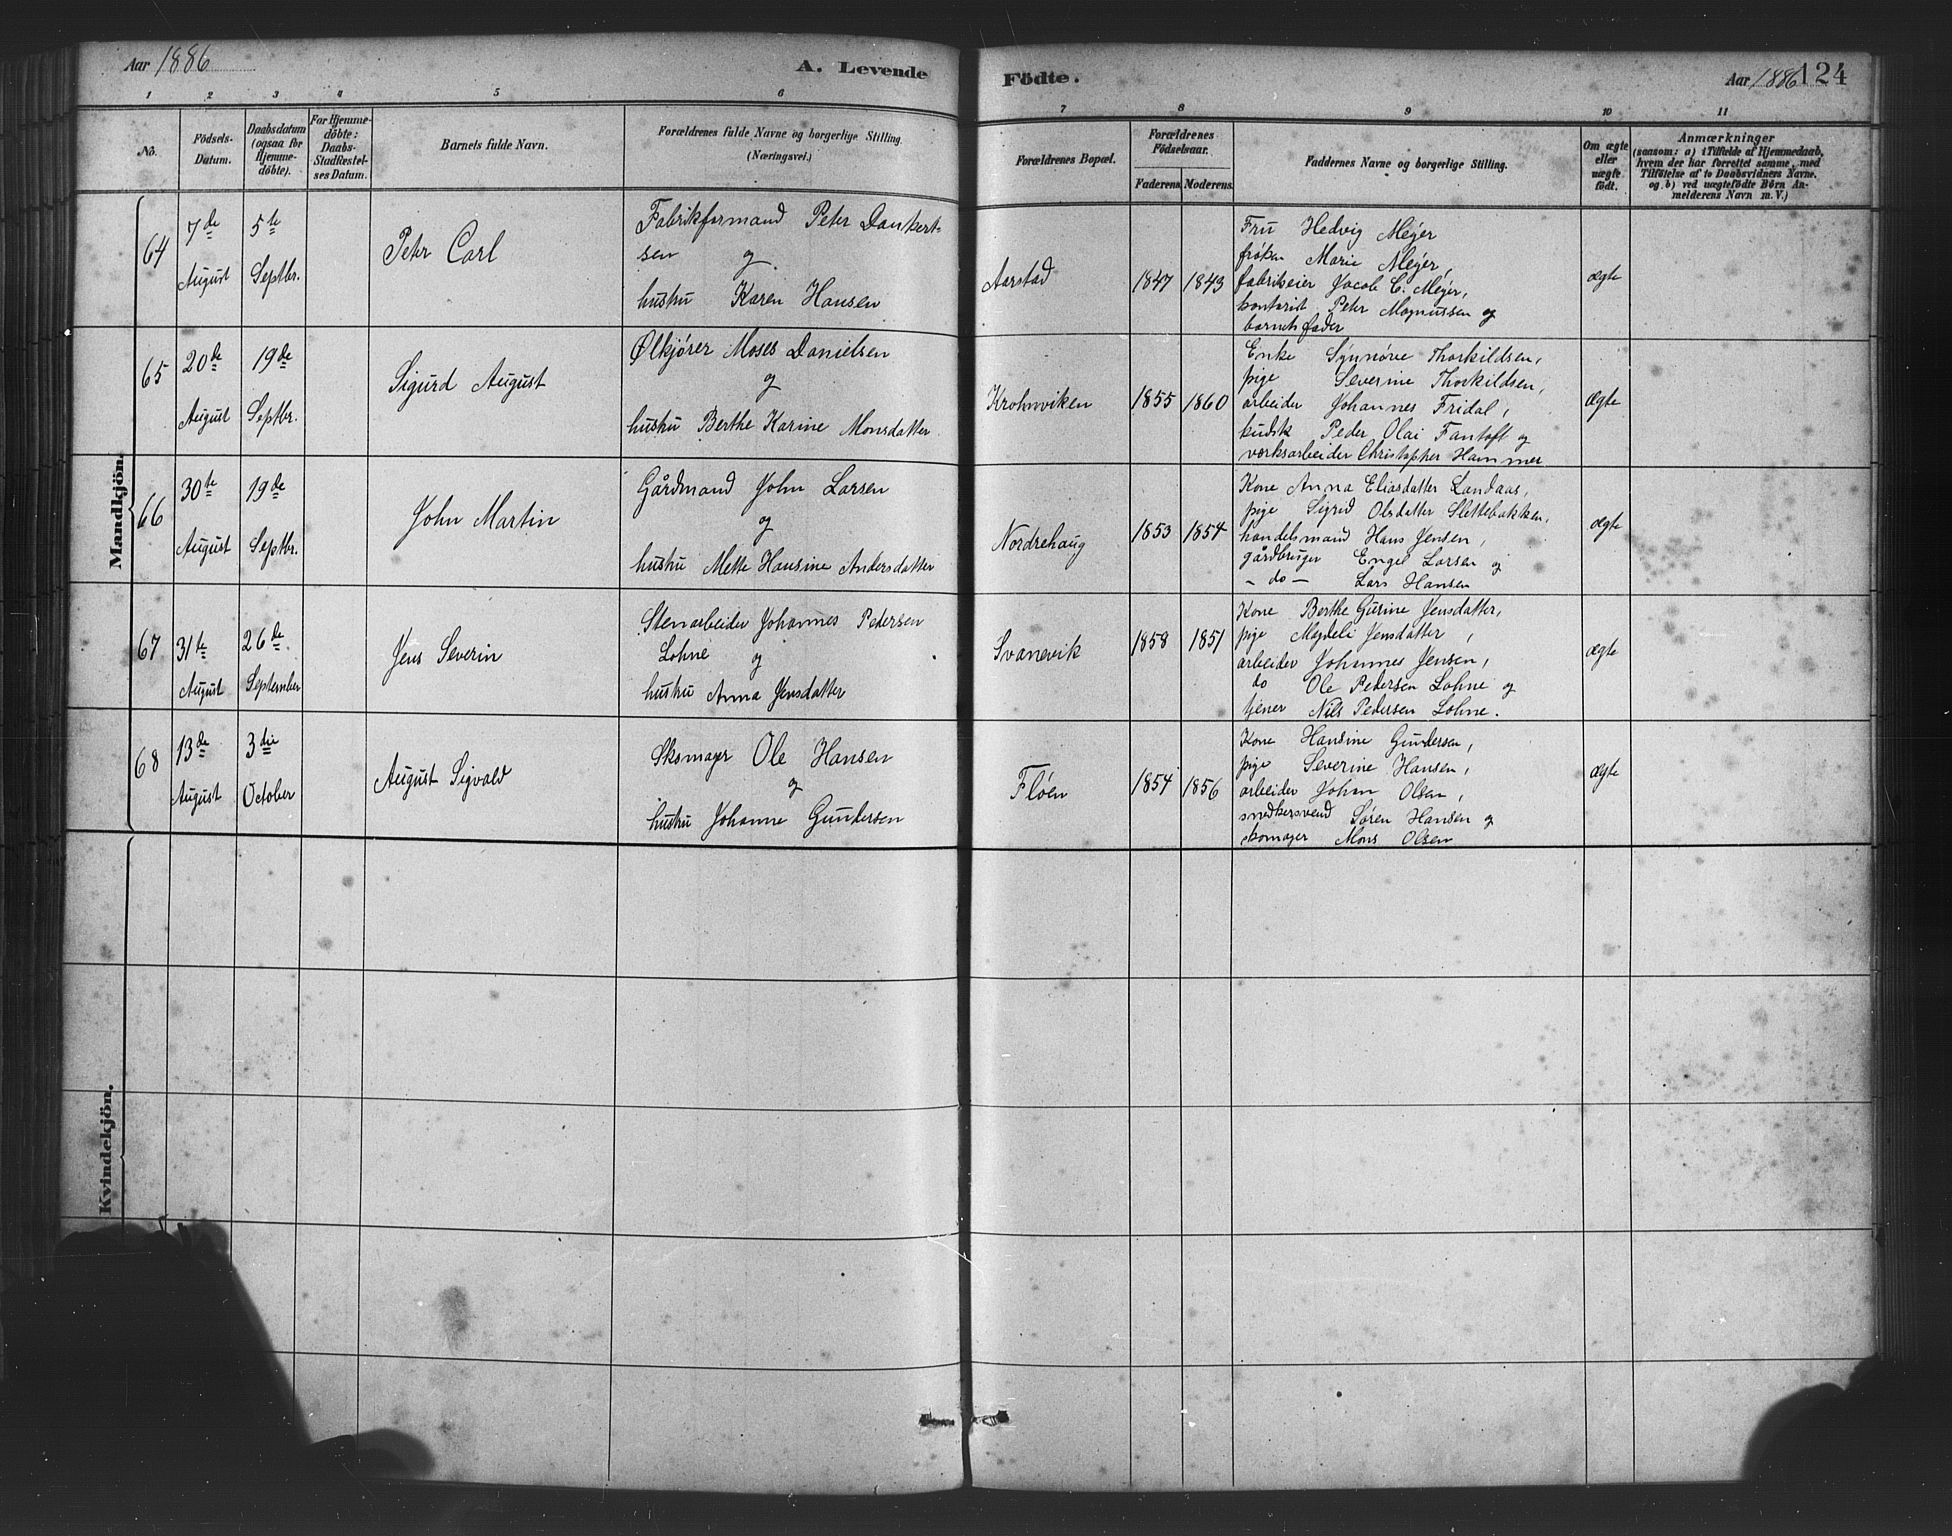 Aar 1886
A. Levende
Födte.
Aar 1886
124
1 2 3 4 5 6 7 8 9 10 11
No.
Födsels-
Datum.
Daabsdatum
(ogsaa for
Hjemme-
döbte).
For Hjemme-
döbte:
Daabs-
Stadfæstel-
ses Datum.
Barnets fulde Navn.
Forældrenes fulde Navne og borgerlige Stilling
(Næringsvei.)
Forældrenes Bopæl.
Forældrenes
Födselsaar.
Faderens Moderens
Faddernes Navne og borgerlige Stilling.
Om ægte
eller
uægte
födt.
Anmærkninger
(saasom: a) i Tilfælde af Hjemmedaab,
hvem der har forrettet samme, med
Tilföielse af to Daabsvidners Navne.
og b) ved uægtefödte Börn An-
melderens Navn m.V.)
Mandkjön.
64
7de
August
5te
Septbr.
Peter Carl
Fabrikformand Peter Dankert-
sen og
hustru Karen Hansen
Aarstad
1847 1843
Fru Hedvig Meyer
frøken Marie Meyer,
fabrikeier Jacob C. Meyer,
kontorist Peter Magnussen og
barnets fader
ægte
65
20de
August
19de
Septbr.
Sigurd August
Ølkjører Moses Danielsen
og
hustru Berthe Karine Monsdatter
Krohnviken
1855 1860
Enke Synnøve Thorkildsen,
pige Severine Thorkildsen,
arbeider Johannes Fridal,
kudsk Peder Olai Fantoft og
værksarbeider Christopher Hammer
Ægte
66
30te
August
19de
Septbr.
John Martin
Gårdmand John Larsen
og
hustru Mette Hansine Andersdatter
Nordrehaug
1853 1854
Kone Anna Eliasdatter Landaas,
pige Sigrid Olsdatter Slettebakken,
handelsmand Hans Jensen,
gårdbruger Engel Larsen og
- do - Lars Hansen
ægte
67
31te
August
26de
September
Jens Severin
Stenarbeider Johannes Pedersen
Lohne og
hustru Anna Jensdatter
Svanevik
1858 1851
Kone Berthe Gurine Jensdatter,
pige Magdeli Jensdatter,
arbeider Johannes Jensen,
do Ole Pedersen Lohne og
tjener Nils Pedersen Lohne.
ægte
68
13de
August
3die
October
August Sigvald
Skomager Ole Hansen
og
hustru Johanne Gundersen
Fløen
1854 1856
Kone Hansine Gundersen,
pige Severine Hansen,
arbeider Johan Olsen,
snedkersvend Søren Hansen og
skomager Mons Olsen
ægte
Kvindekjön.